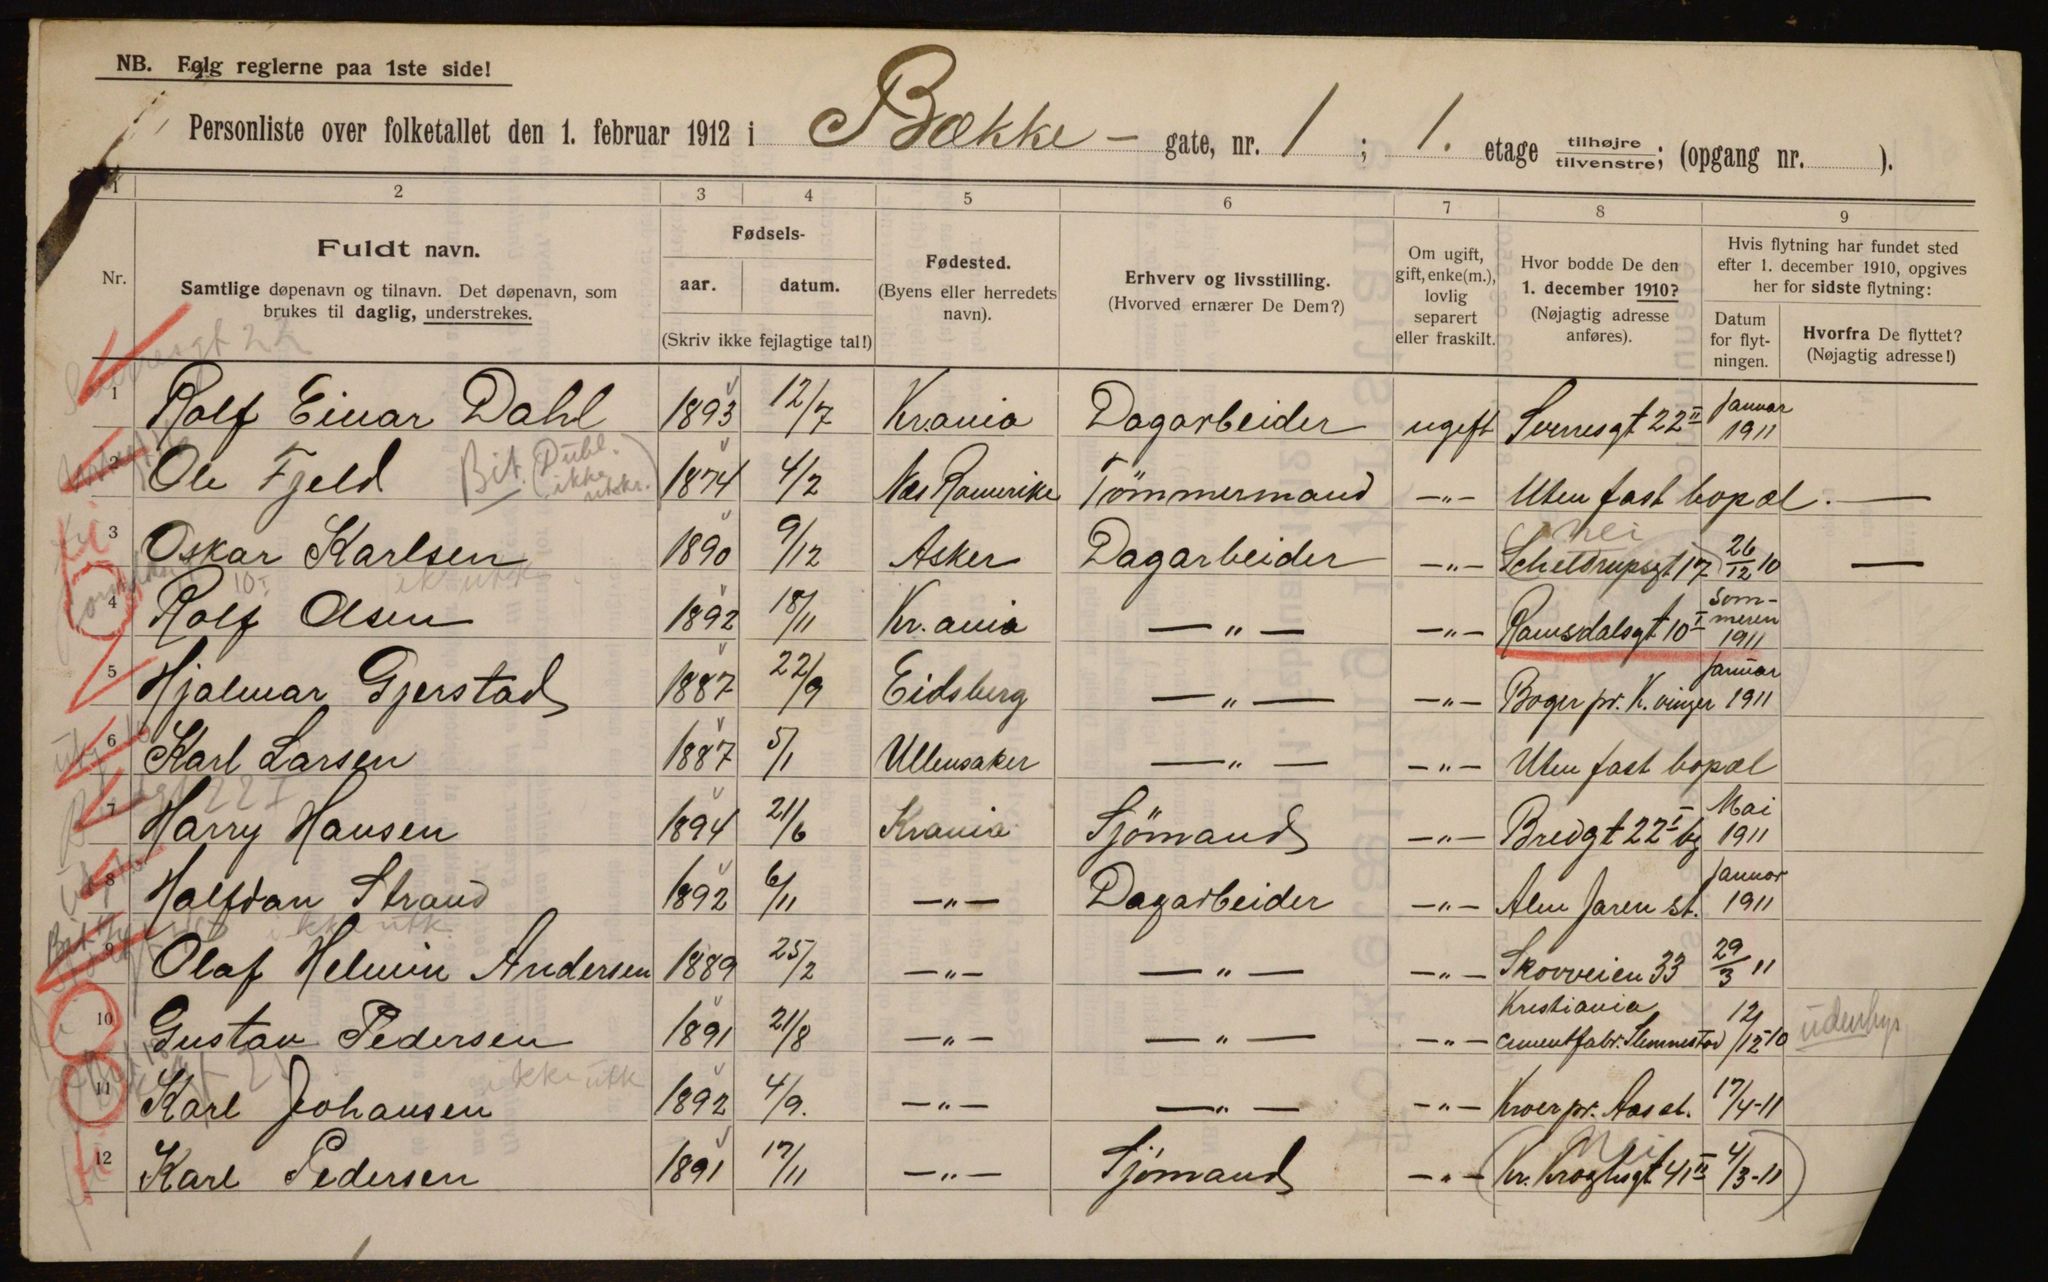 NB. Følg reglerne paa 1ste side!
Personliste over folketallet den 1. februar 1912 i Bække- gate, nr. 1; 1. etage tilhøjre/tilvenstre; (opgang nr. ).
1 2 3 4 5 6 7 8 9
Nr.
Fuldt navn.
Samtlige døpenavn og tilnavn. Det døpenavn, som
brukes til daglig, understrekes.
Fødsels-
aar. datum.
(Skriv ikke fejlagtige tal!)
Fødested.
(Byens eller herredets
navn).
Erhverv og livsstilling.
(Hvorved ernærer De Dem?)
Om ugift,
gift, enke(m.),
lovlig
separert
eller fraskilt.
Hvor bodde De den
1. december 1910?
(Nøjagtig adresse
anføres).
Hvis flytning har fundet sted
efter 1. december 1910, opgives
her for sidste flytning:
Datum
for flyt-
ningen.
Hvorfra De flyttet?
(Nøjagtig adresse!)
1 Rolf Einar Dahl 1893 12/7 Kr.ania Dagarbeider ugift Sverresgt 22 II Januar 1911
2 Ole Fjeld Bit. (Dubl. ikke utskr.) 1874 4/2 Næs Romerike Tömmermand -"- Uten fast bopæl. —
3 Oskar Karlsen 1890 9/12 Asker Dagarbeider -"- Scheldrupsgt 17 nei 26/12 10 —
4 Rolf Olsen ikke utk 1892 18/11 Kr.ania —"— -"- Ramsdalsgt 10 I Sommeren 1911
5 Hjalmar Gjerstad 1887 22/9 Eidsberg —"— -"- Boger pr. K.vinger Januar 1911
6 Karl Larsen 1887 5/1 Ullensaker —"— -"- Uten fast bopæl
7 Harry Hansen 1894 21/6 Kr.ania Sjömand -"- Bredgt 22 I bg Mai 1911
8 Halfdan Strand 1892 6/11 -"- Dagarbeider -"- Alm Jaren st. Januar 1911
ikke utk
9 Olaf Helmin Andersen 1889 25/2 -"- —"— -"- Skovveien 33 29/3 11
10 Gustav Pedersen 1891 21/8 -"- —"— -"- Kristiania cementfabr. Slemmestad 12/12 10 udenbys
11 Karl Johansen ikke utk 1892 4/9. -"- —"— -"- Kroer pr. Aas st. 17/4-11
12 Karl Pedersen 1891 17/11 -"- Sjömand -"- (Kr. Kroghsgt 41 II Nei 4/3-11)